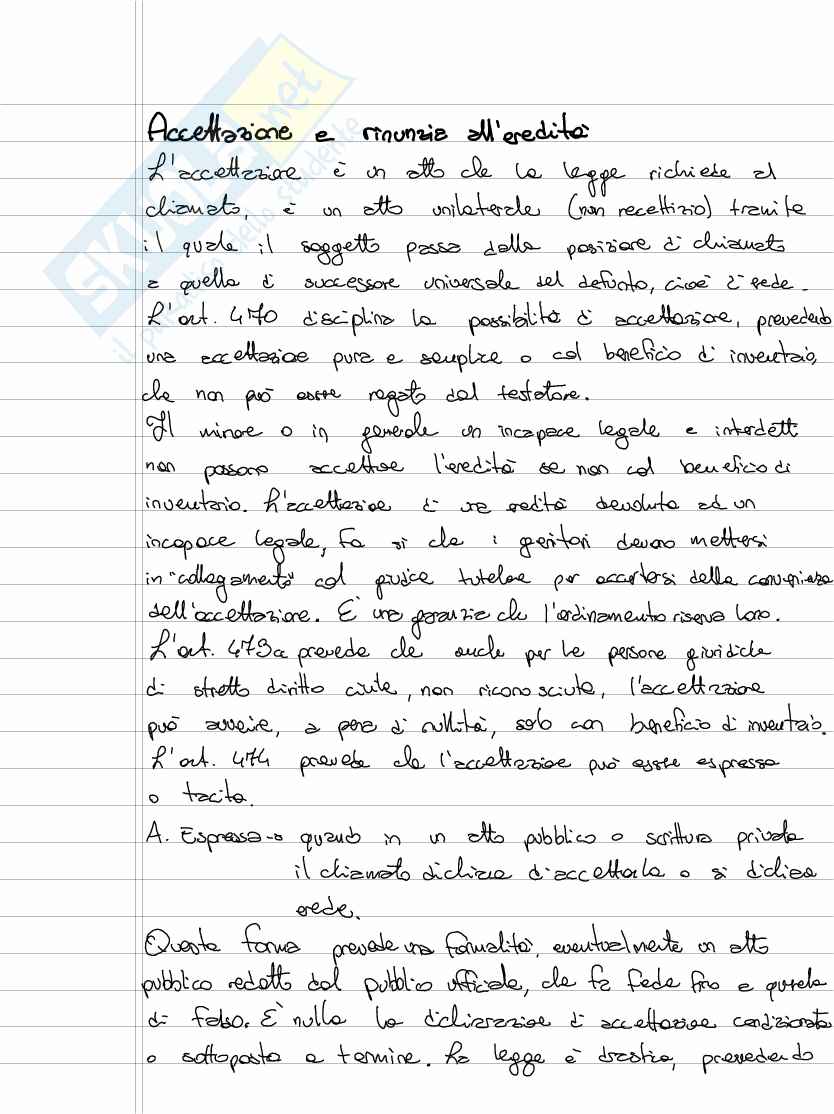 Accettazione e rinunzia all'eredità
L'accettazione è un atto che la legge richiede al
chiamato, è un atto unilaterale (non recettizio) tramite
il quale il soggetto passa dalla posizione di chiamato
a quella di successore universale del defunto, cioè erede.
L'art. 470 disciplina la possibilità di accettazione, prevedendo
una accettazione pura e semplice o col beneficio di inventario,
che non può essere negato dal testatore.
Il minore o in generale un incapace legale e interdetti
non possono accettare l'eredità se non col beneficio di
inventario. L'accettazione di una eredità devoluta ad un
incapace legale, fa si che i genitori devono mettersi
in "collegamento" col giudice tutelare per accertarsi della convenienza
dell'accettazione. È una garanzia che l'ordinamento riserva loro.
L'art. 473 prevede che anche per le persone giuridiche
di stretto diritto civile, non riconosciute, l'accettazione
può avvenire, a pena di nullità, solo con beneficio di inventario.
L'art. 474 prevede che l'accettazione può essere espressa
o tacita.
A. Espressa → quando in un atto pubblico o scrittura privata
il chiamato dichiara di accettarla o si dichiara
erede.
Questa forma prevede una formalità, eventualmente un atto
pubblico redatto dal pubblico ufficiale, che fa fede fino a querela
di falso. È nulla la dichiarazione di accettazione condizionata
o sottoposta a termine. La legge è drastica, prevedendo
SKUOLA.net
il paradiso dello studente